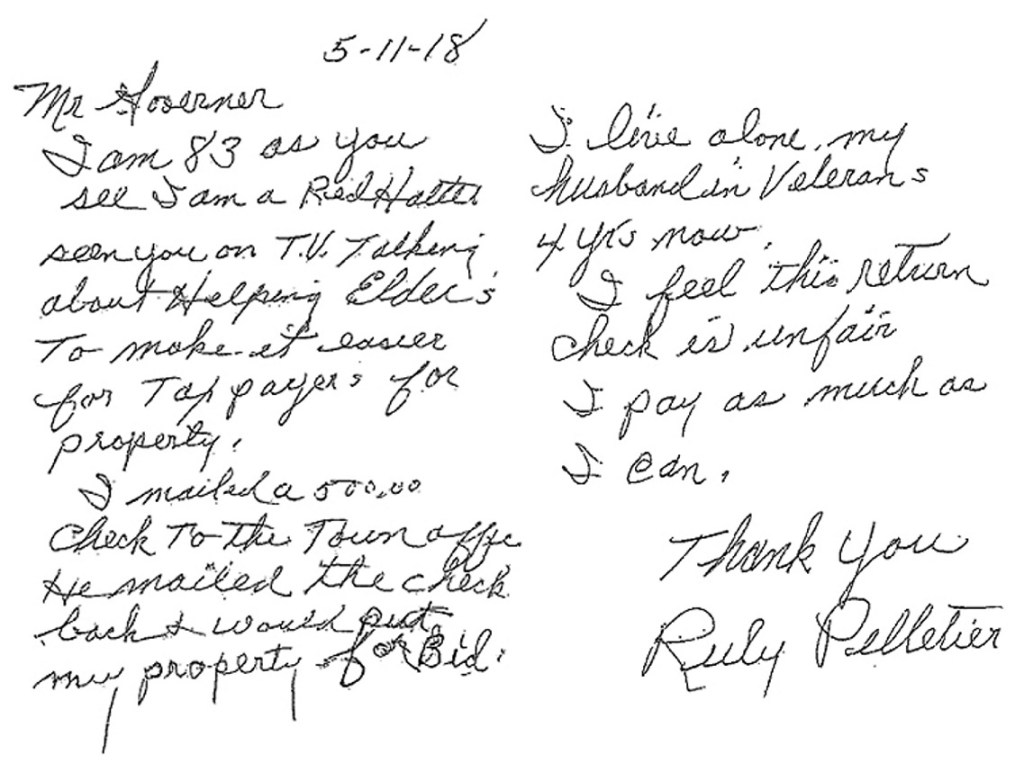 5-11-18
Mr Governer
I am 83 as you
see I am a Red Hatter
seen you on T.V. Talking
about Helping Elder's
To make it easier
for Tax payers for
property.
I mailed a 500.00
check To The Town office
He mailed the check
back & would put
my property for Bid.
I live alone, my
husband in Veterans
4 yrs now.
I feel this return
check is unfair
I pay as much as
I can.
Thank you
Ruby Pelletier